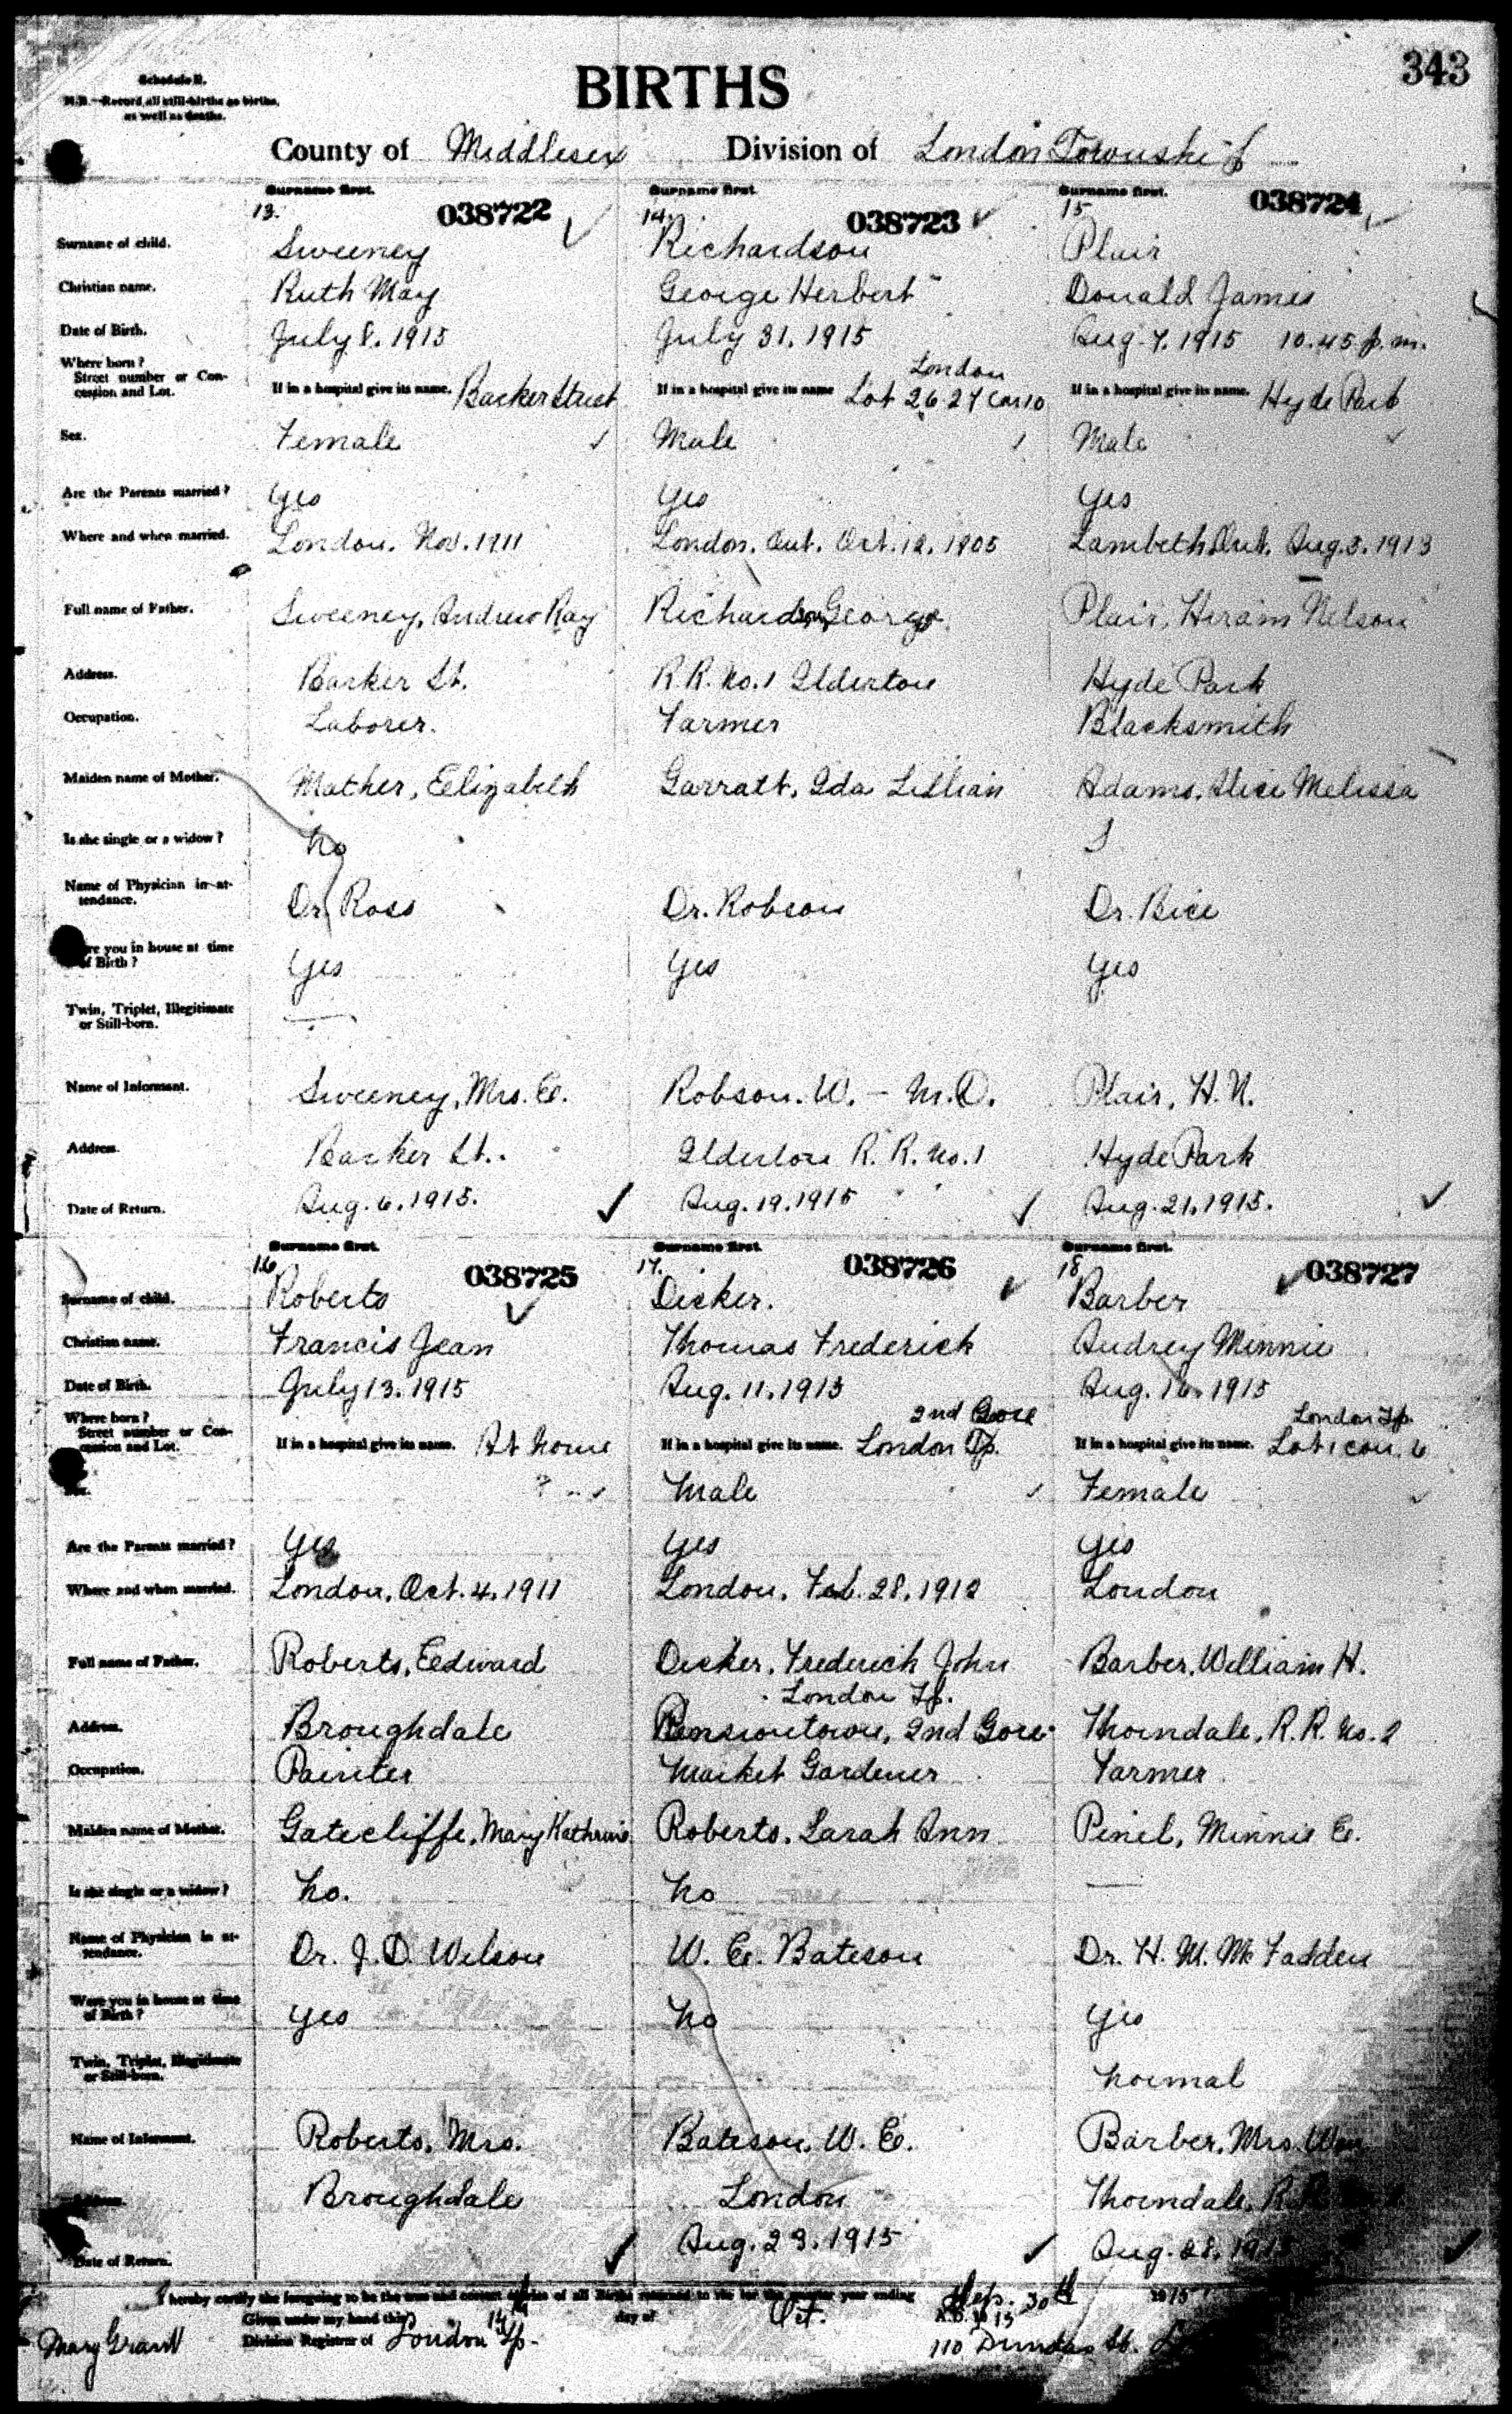 343
Schedule B.
N.B.—Record all still-births as births, as well as deaths.
BIRTHS
County of Middlesex Division of London Township
Surname first. Surname first. Surname first.
13. 038722 14. 038723 15 038724
Surname of child. Sweeney Richardson Plair
Christian name. Ruth May George Herbert Donald James
Date of Birth. July 8. 1915 July 31. 1915 Aug. 7. 1915 10.45 p.m.
Where born? London
Street number or Concession and Lot. If in a hospital give its name. Barker Street If in a hospital give its name Lot 26.27 Con 10 If in a hospital give its name. Hyde Park
Sex. Female Male Male
Are the Parents married? Yes Yes Yes
Where and when married. London. Nov. 1911 London, Ont. Oct. 12. 1905 Lambeth, Ont. Aug. 5. 1913
Full name of Father. Sweeney, Andrew Ray Richardson, George Plair, Hiram Nelson
Address. Barker St. R.R. No. 1 Ilderton Hyde Park
Occupation. Laborer. Farmer Blacksmith
Maiden name of Mother. Mather, Elizabeth Garratt, Ida Lillian Adams, Alice Melissa
Is she single or a widow? No S
Name of Physician in attendance. Dr. Ross Dr. Robson Dr. Bice
Were you in house at time of Birth? Yes Yes Yes
Twin, Triplet, Illegitimate or Still-born. —
Name of Informant. Sweeney, Mrs. E. Robson. W. — M.D. Plair, H. N.
Address. Barker St. Ilderton R. R. No. 1 Hyde Park
Date of Return. Aug. 6. 1915. Aug. 19. 1915 Aug. 21. 1915.
Surname first. Surname first. Surname first.
16 038725 17. 038726 18 038727
Surname of child. Roberts Decker. Barber
Christian name. Francis Jean Thomas Frederick Audrey Minnie
Date of Birth. July 13. 1915 Aug. 11. 1915 Aug. 16. 1915
Where born? 2nd Gore London Tp.
Street number or Concession and Lot. If in a hospital give its name. At home If in a hospital give its name. London Tp. If in a hospital give its name. Lot 1 con. 6
Sex. ? Male Female
Are the Parents married? Yes Yes Yes
Where and when married. London, Oct. 4. 1911 London, Feb. 28. 1912 London
Full name of Father. Roberts, Edward Decker, Frederick John Barber, William H.
London Tp.
Address. Broughdale Pensiontown, 2nd Gore Thorndale, R.R. No. 2
Occupation. Painter Market Gardener Farmer
Maiden name of Mother. Gatecliffe, Mary Kathrine Roberts, Sarah Ann Pinel, Minnie E.
Is she single or a widow? No. No —
Name of Physician in attendance. Dr. J. D. Wilson W. E. Bateson Dr. H. M. McFadden
Were you in house at time of Birth? Yes No Yes
Twin, Triplet, Illegitimate or Still-born. Normal
Name of Informant. Roberts, Mrs. Bateson, W. E. Barber, Mrs. Wm
Address. Broughdale London Thorndale, R.R.
Date of Return. Aug. 23. 1915 Aug. 28. 1915
I hereby certify the foregoing to be the true and correct entries of all Births returned to me for the quarter year ending Sep. 30th 1915
Given under my hand this 14th day of Oct. A.D. 1915
Mary Grant Division Registrar of London Tp. 110 Dundas St.